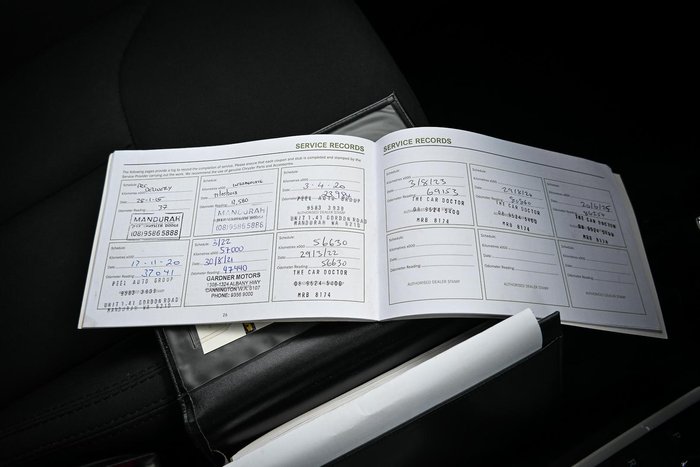 SERVICE RECORDS
The following pages provide a log to record the completion of service. Please ensure that each coupon and stub is completed and stamped by the
Service Provider carrying out the work. We recommend the use of genuine Chrysler Parts and Accessories.
Schedule
Delivery
Kilometres x000
Date
Odometer Reading 27
MANDURAH
(08) 9586 5888
Schedule
Kilometres x000
Date
Odometer Reading
MANDURAH
(08) 9586 5888
Schedule
Kilometres x000
Date 3-4-20
Odometer Reading
PEEL AUTO GROUP
9583 3939
AUTHORISED DEALER STAMP
UNIT 1,41 GORDON ROAD
MANDURAH WA 6210
Schedule
Kilometres x000
Date 17-11-20
Odometer Reading 37041
PEEL AUTO GROUP
9583 3939
UNIT 1,41 GORDON ROAD
MANDURAH WA 6210
Schedule
Kilometres x000 57000
Date 30/8/21
Odometer Reading 47440
GARDNER MOTORS
1308-1324 ALBANY HWY
CANNINGTON W.A. 6107
PHONE: 9356 9000
Schedule
Kilometres x000 56630
Date 29/3/22
Odometer Reading 56630
THE CAR DOCTOR
08 9524 5400
MRB 8174
26
SERVICE RECORDS
Schedule
Kilometres x000
Date 3/8/23
Odometer Reading 69153
THE CAR DOCTOR
08 9524 5400
MRB 8174
Schedule
Kilometres x000
Date
Odometer Reading
THE CAR DOCTOR
08 9524 5400
MRB 8174
Schedule
Kilometres x000
Date
Odometer Reading
THE CAR DOCTOR
08 9524 5400
MRB 8174
Schedule
Kilometres x000
Date
Odometer Reading
AUTHORISED DEALER STAMP
Schedule
Kilometres x000
Date
Odometer Reading
AUTHORISED DEALER STAMP
Schedule
Kilometres x000
Date
Odometer Reading
AUTHORISED DEALER STAMP